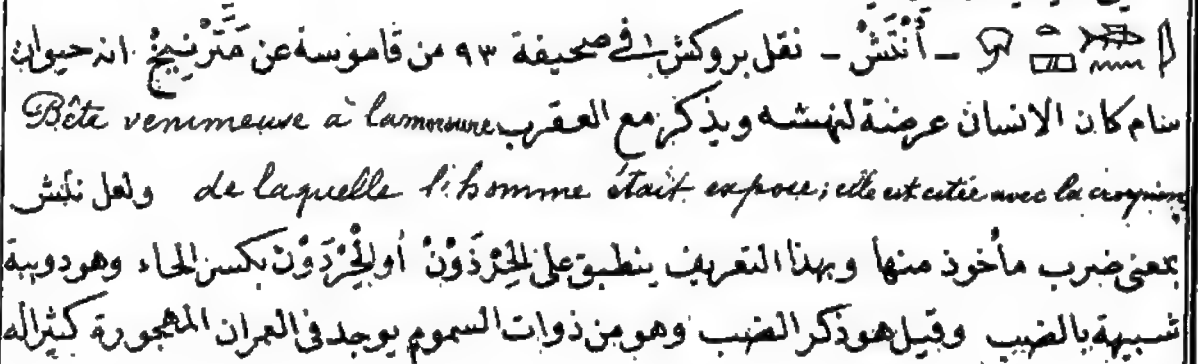 ـ أَنْتَشْ ـ نقل بروكش في صحيفة ٩٣ من قاموسة عن مَتَّرْنِيخْ انه حيوان
سام كان الانسان عرضة لنهشه ويذكر مع العقرب Bête venimeuse à la morsure
de laquelle l'homme était exposé; elle est citée avec la ولعل نتش
بمعنى ضرب مأخوذ منها وبهذا التعريف ينطبق على الحِرْذَوْنْ أو الحِرْدَوْنْ بكسر الحاء وهو دويبة
شبيهة بالضب وقيل هو ذكر الضب وهو من ذوات السموم يوجد في العمران المهجورة كثيرا له